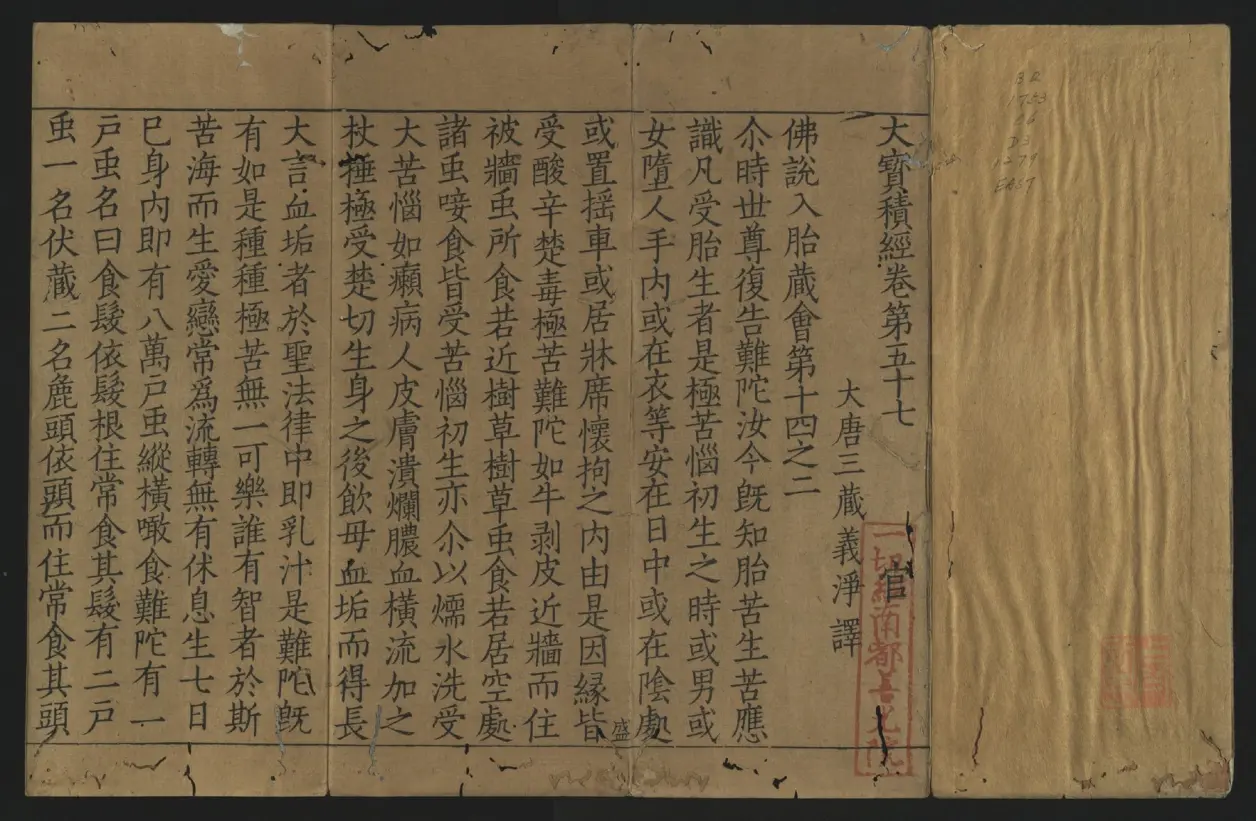 1279
EAST
大寶積經卷第五十七 官
大唐三蔵義淨譯
一切經南都善光院
佛說入胎蔵會第十四之二
尒時世尊復告難陀汝今旣知胎苦生苦應
識凡受胎生者是極苦惱初生之時或男或
女墮人手內或在衣等安在日中或在陰處
盛
或置揺車或居牀席懷拘之內由是因緣皆
受酸辛楚毒極苦難陀如牛剥皮近牆而住
被牆虫所食若近樹草樹草虫食若居空處
諸虫唼食皆受苦惱初生亦尒以煗水洗受
大苦惱如癩病人皮膚潰爛膿血橫流加之
杖捶極受楚切生身之後飲母血垢而得長
大言血垢者於聖法律中即乳汁是難陀旣
有如是種種極苦無一可樂誰有智者於斯
苦海而生愛戀常爲流轉無有休息生七日
已身內即有八萬戶虫縱橫噉食難陀有一
戶虫名曰食髮依髮根住常食其髮有二戶
虫一名伏蔵二名麁頭依頭而住常食其頭